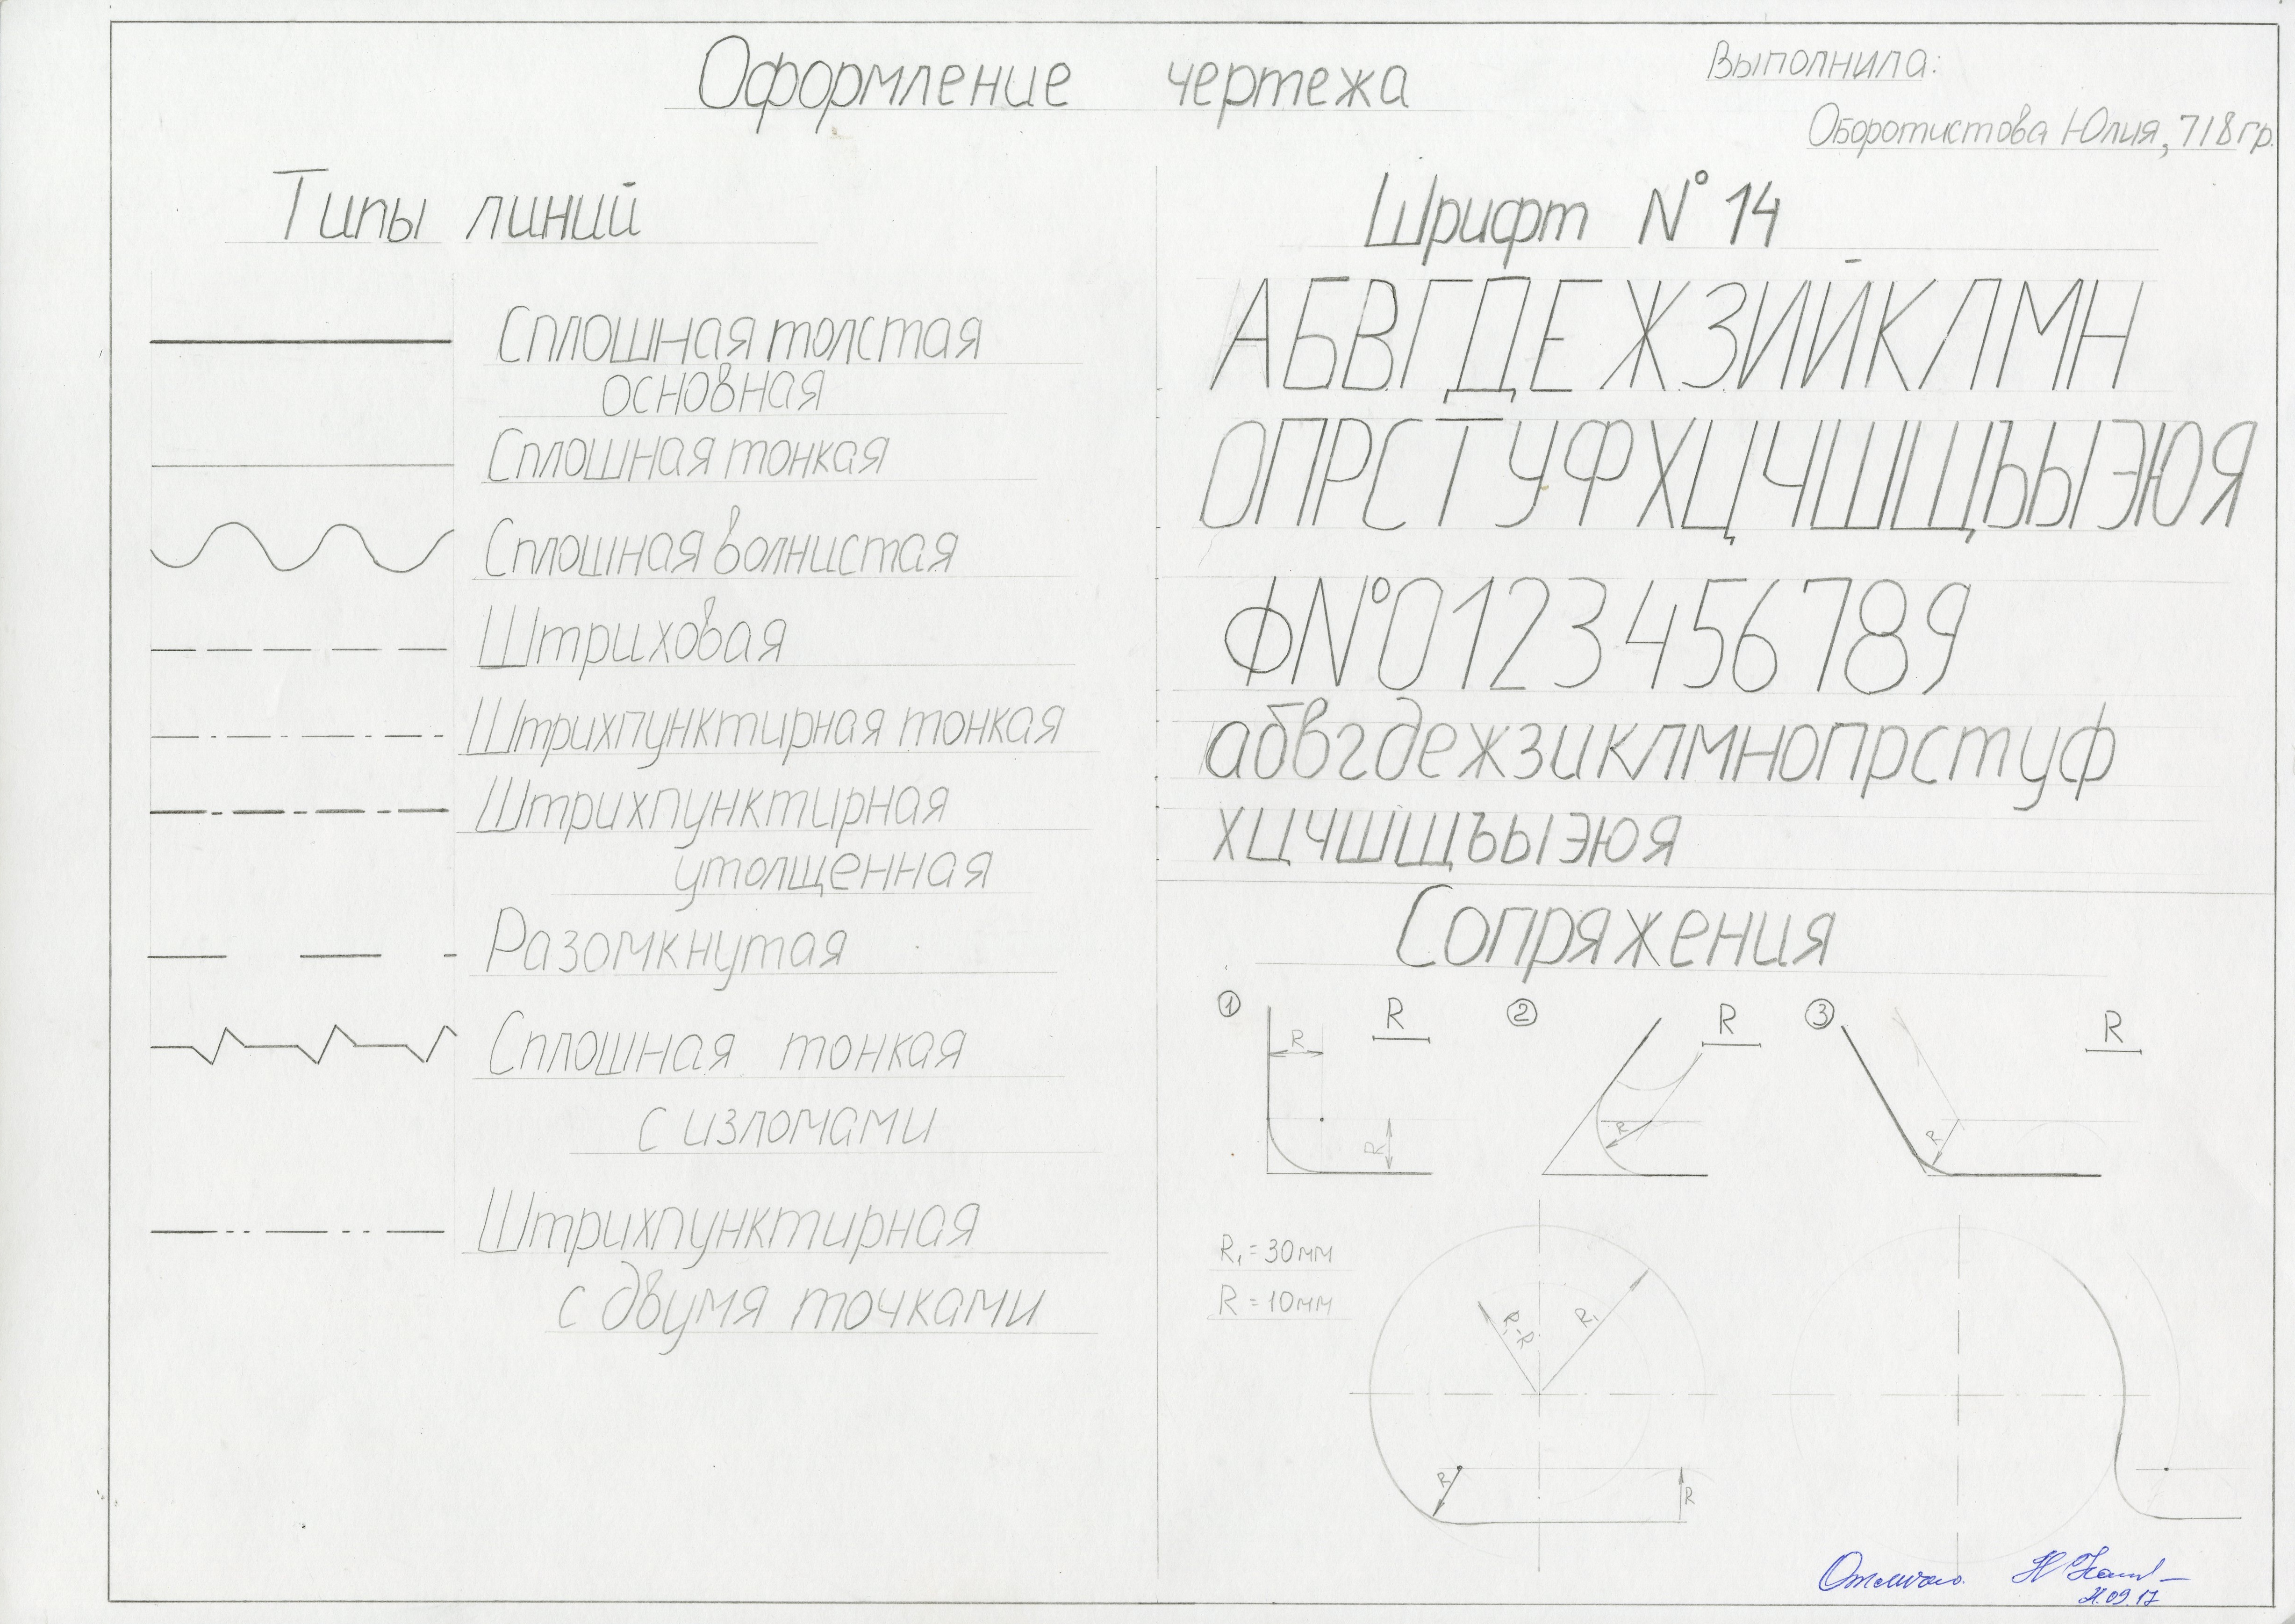 Оформление чертежа
Выполнила:
Оборотистова Юлия, 718 гр.
Типы линий
Сплошная толстая
основная
Сплошная тонкая
Сплошная волнистая
Штриховая
Штрихпунктирная тонкая
Штрихпунктирная
утолщенная
Разомкнутая
Сплошная тонкая
с изломами
Штрихпунктирная
с двумя точками
Шрифт №14
АБВГДЕЖЗИЙКЛМН
ОПРСТУФХЦЧШЩЪЫЭЮЯ
ф№0123456789
абвгдежзиклмнопрстуф
хцчшщъыэюя
Сопряжения
1 R 2 R 3 R
R
R
R
R
R₁=30мм
R=10мм
R₁-R
R₁
R
R
Отлично.